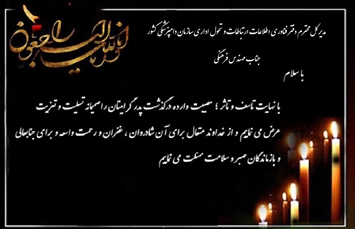 انا لله و انا الیه راجعون
مدیر کل محترم دفتر فناوری اطلاعات ارتباطات و تحول اداری سازمان دامپزشکی کشور
جناب مهندس فرهنگی
با سلام
با نهایت تاسف و تاثر ؛ مصیبت وارده درگذشت پدر گرامیتان را صمیمانه تسلیت و تعزیت
عرض می نمایم و از خداوند متعال برای آن شادروان ، غفران و رحمت واسعه و برای جنابعالی
و بازماندگان صبر و سلامت مسئلت می نمایم